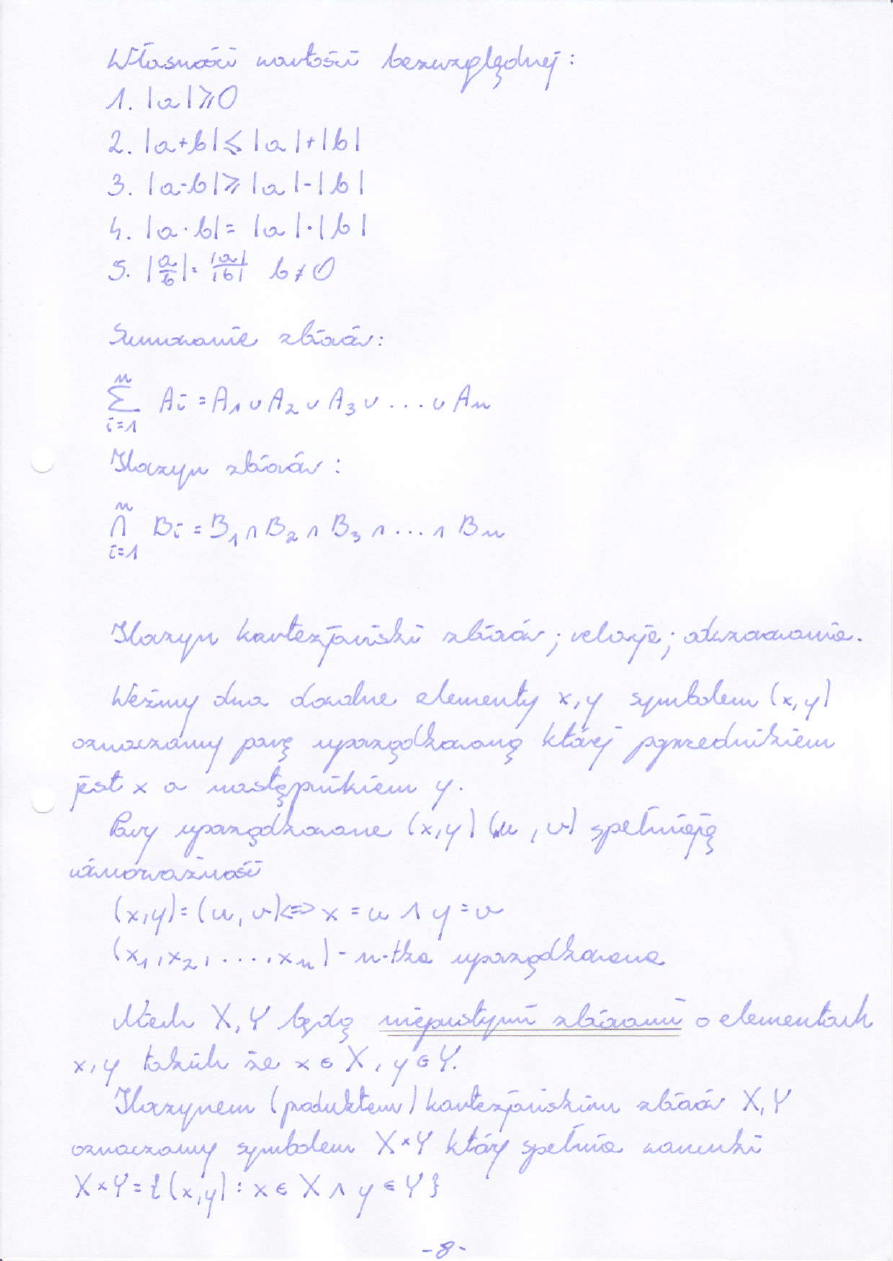 Własności wartości bezwzględnej:
1. |a|⩾0
2. |a+b|⩽|a|+|b|
3. |a-b|⩾|a|-|b|
4. |a·b|=|a|·|b|
5. |a/b|=|a|/|b| b≠0
Sumowanie zbiorów:
n
∑ Ai = A₁ ∪ A₂ ∪ A₃ ∪ ... ∪ An
i=1
Iloczyn zbiorów:
n
∩ Bi = B₁ ∩ B₂ ∩ B₃ ∩ ... ∩ Bn
i=1
Iloczyn kartezjański zbiorów; relacje; odwzorowanie.
Weźmy dwa dowolne elementy x,y symbolem (x,y)
oznaczamy parę uporządkowaną której poprzednikiem
jest x a następnikiem y.
Pary uporządkowane (x,y) (u,v) spełniają
równoważność
(x,y)=(u,v)<=> x=u ∧ y=v
(x₁,x₂,....,xn) - n-tka uporządkowana
Niech X,Y będą niepustymi zbiorami o elementach
x,y takich że x∈X, y∈Y.
Iloczynem (produktem) kartezjańskim zbiorów X,Y
oznaczamy symbolem X×Y który spełnia warunki
X×Y={(x,y): x∈X ∧ y∈Y}
-8-